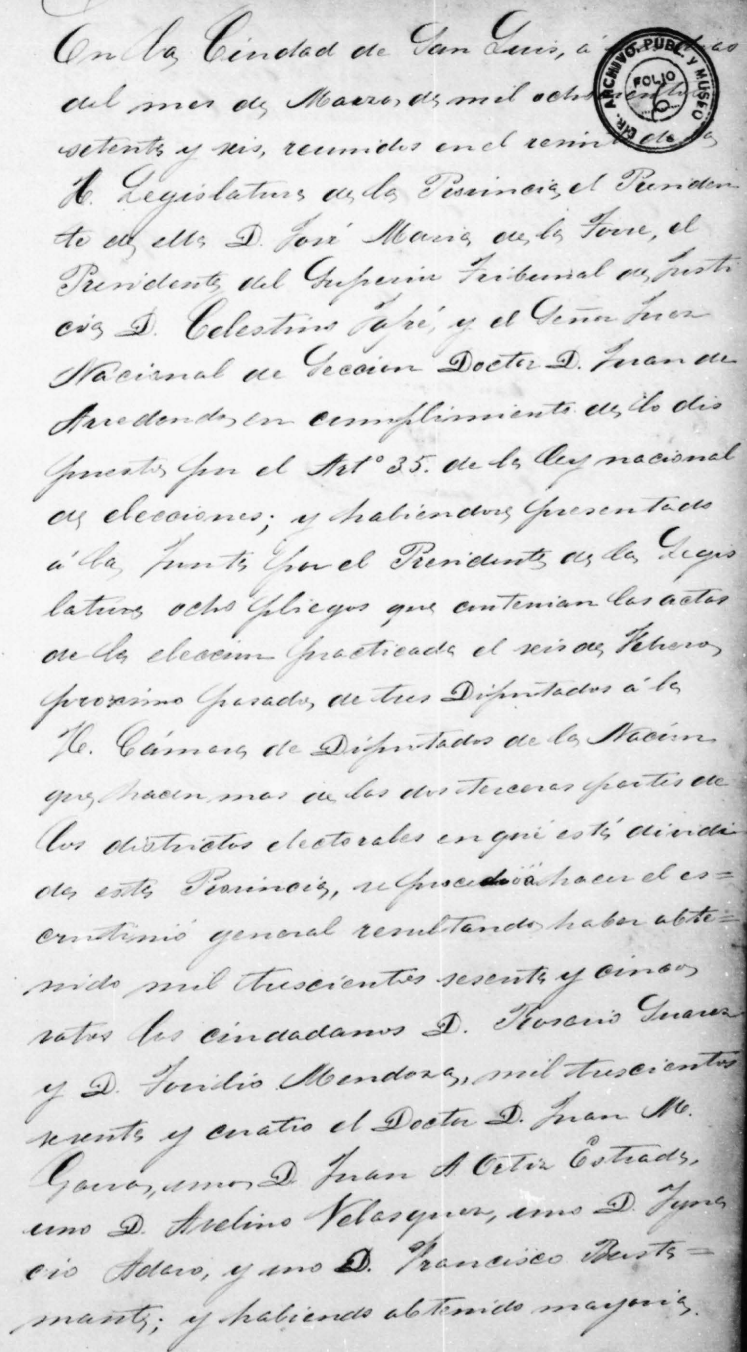 En la Ciudad de San Luis, á
del mes de Marzo de mil ochocientos
setenta y seis, reunidos en el recinto de la
H. Legislatura de la Provincia, el Presiden
te de ella D. José Maria de la Torre, el
Presidente del Superior Tribunal de Justi
cia D. Celestino Jofré, y el Señor Juez
Nacional de Seccion Doctor D. Juan de
Arredondo, en cumplimiento de lo dis
puesto por el Artº 35. de la ley nacional
de elecciones; y habiendose presentado
á la Junta por el Presidente de la Legis
latura ocho pliegos que contenian las actas
de la eleccion practicada el seis de Febrero
proximo pasado, de tres Diputados á la
H. Cámara de Diputados de la Nación
que hacen mas de las dos terceras partes de
los districtos electorales en que está dividi
da esta Provincia, se procedió á hacer el es=
crutinió general resultando haber obte=
nido mil trescientos sesenta y cinco
votos los ciudadanos D. Rosario Suarez
y D. Tovidio Mendoza, mil trescientos
sesenta y cuatro el Doctor D. Juan M.
Garro, uno D. Juan A Ortiz Estrada,
uno D. Avelino Velasquez, uno D. Ygna
cio Adaro, y uno D. Francisco Busta=
mante; y habiendo obtenido mayoria,
DIR. ARCHIVO. PUBL. Y MUSEO
FOLIO